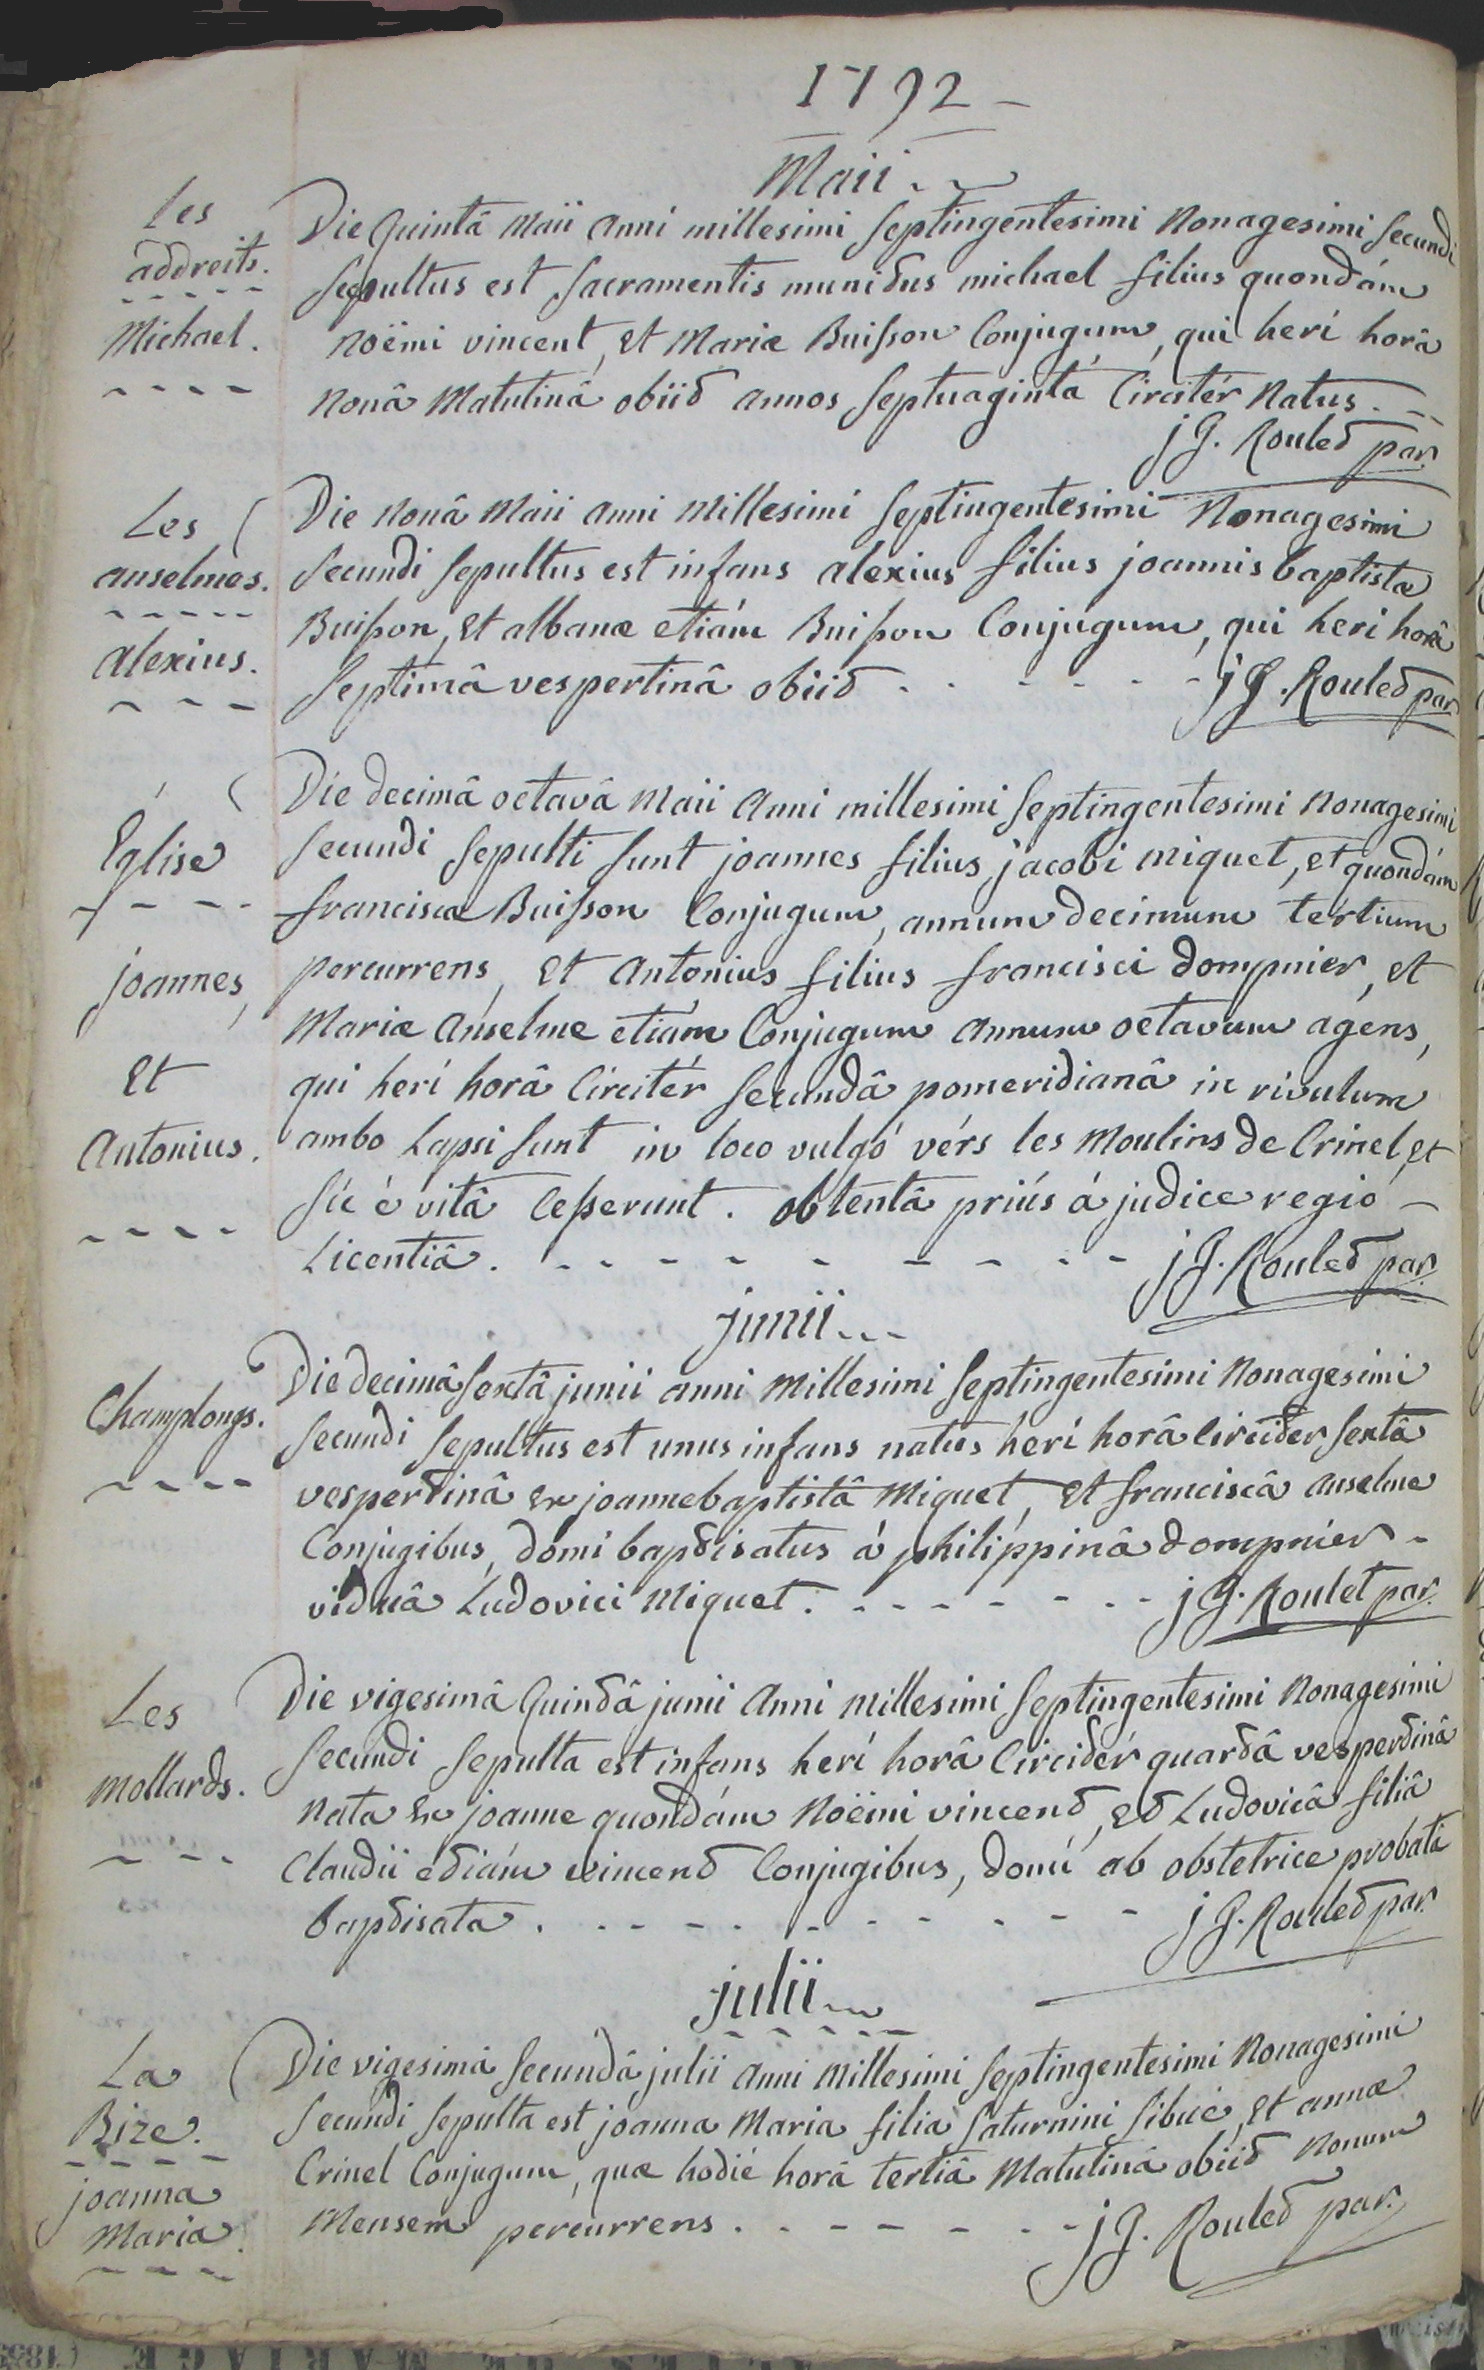 1792
Maii
Les
addreits.
Michael.
Die Quintâ Maii anni millesimi Septingentesimi Nonagesimi Secundi
Sepultus est Sacramentis munitus michael filius quondám
Noëmi vincent, Et Mariæ Buisson Conjugum, qui herí horâ
Nonâ Matutinâ obiit annos Septuagintá Circitér Natus.
j G. Roulet par.
Les
anselmes.
alexius.
Die Nonâ Maii anni Millesimi Septingentesimi Nonagesimi
Secundi Sepultus est infans alexius filius joannis baptistæ
Buisson, Et albanæ etiám Buisson Conjugum, qui heri horâ
Septimâ vespertinâ obiit . . . . . . j G. Roulet par.
Eglise
joannes,
Et
Antonius.
Die decimâ octavâ Maii Anni millesimi Septingentesimi Nonagesimi
Secundi Sepulti Sunt joannes filius jacobi miquet, et quondám
franciscæ Buisson Conjugum, annum decimum tertium
percurrens, Et Antonius filius francisci dompnier, et
Mariæ Anselme etiám Conjugum annum octavum agens,
qui herí horâ Circitér Secundâ pomeridianâ in rivulum
ambo Lapsi Sunt in loco vulgó vérs les Moulins de Crinel, Et
Sic é vitâ Cesserunt. obtentâ priús á judice regio
Licentiâ. - - - - - - - - j G. Roulet par.
junii...
Champlongs.
Die decimâ Sextâ junii anni Millesimi Septingentesimi Nonagesimi
Secundi Sepultus est unus infans natus herí horâ Circiter Sextâ
vespertinâ Ex joanne baptistâ Miquet, Et franciscâ Anselme
Conjugibus, domi baptisatus á philippinâ dompnier
viduâ Ludovici Miquet. - - - - - - j G. Roulet par.
Les
Mollards.
Die vigesimâ Quintâ junii Anni Millesimi Septingentesimi Nonagesimi
Secundi Sepulta est infans herí horâ Circitér quartâ vespertinâ
Nata Ex joanne quondám Noëmi vincent, Et Ludovicâ filiâ
Claudii etiám vincent Conjugibus, domi ab obstetrice probatâ
baptisata. - - - - - - - - j G. Roulet par.
julii
La
Bize.
joanna
Maria.
Die vigesimâ Secundâ julii Anni Millesimi Septingentesimi Nonagesimi
Secundi Sepulta est joanna Maria filia Saturnini Sibué, Et annæ
Crinel Conjugum, quæ hodié horâ tertiâ Matutinâ obiit Nonum
Mensem percurrens. - - - - - j G. Roulet par.